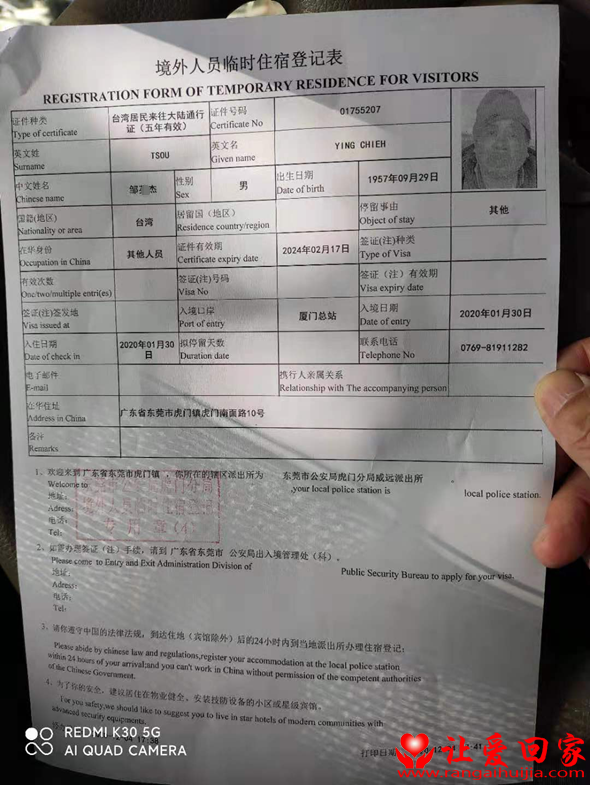 境外人员临时住宿登记表
REGISTRATION FORM OF TEMPORARY RESIDENCE FOR VISITORS
证件种类 台湾居民来往大陆通行证（五年有效） 证件号码 01755207
Type of certificate Certificate No
英文姓 TSOU 英文名 YING CHIEH
Surname Given name
中文姓名 邹 杰 性别 男 出生日期 1957年09月29日
Chinese name Sex Date of birth
国籍(地区) 台湾 居留国（地区） 停留事由 其他
Nationality or area Residence country/region Object of stay
在华身份 其他人员 证件有效期 2024年02月17日 签证(注)种类
Occupation in China Certificate expiry date Type of Visa
有效次数 签证(注)号码 签证（注）有效期
One/two/multiple entri(es) Visa No Visa expiry date
签证(注)签发地 入境口岸 厦门总站 入境日期 2020年01月30日
Visa issued at Port of entry Date of entry
入住日期 2020年01月30日 拟停留天数 联系电话 0769-81911282
Date of check in Duration date Telephone No
电子邮件 携行人亲属关系
E-mail Relationship with The accompanying person
在华住址 广东省东莞市虎门镇虎门南面路10号
Address in China
备注
Remarks
1、欢迎来到 广东省东莞市虎门镇 ，你所在的辖区派出所为 东莞市公安局虎门分局威远派出所
Welcome to ,your local police station is local police station.
地址：
Adress:
电话：
Tel:
2、如需办理签证（注）手续，请到 广东省东莞市 公安局出入境管理处（科）。
Please come to Entry and Exit Administration Division of Public Security Bureau to apply for your visa.
地址：
Adress:
电话：
Tel:
3、请你遵守中国的法律法规，到达住地（宾馆除外）后的24小时内到当地派出所办理住宿登记；
Please abide by chinese law and regulations,register your accommodation at the local police station
within 24 hours of your arrival;and you can't work in China without permission of the competent authorities
of the Chinese Government.
4、为了你的安全，建议居住在物业健全，安装技防设备的小区或星级宾馆。
For you safety,we should like to suggest you to live in star hotels of modern communities with
advanced security equipments.
打印日期
REDMI K30 5G
AI QUAD CAMERA
让爱回家
www.rangaihuijia.com